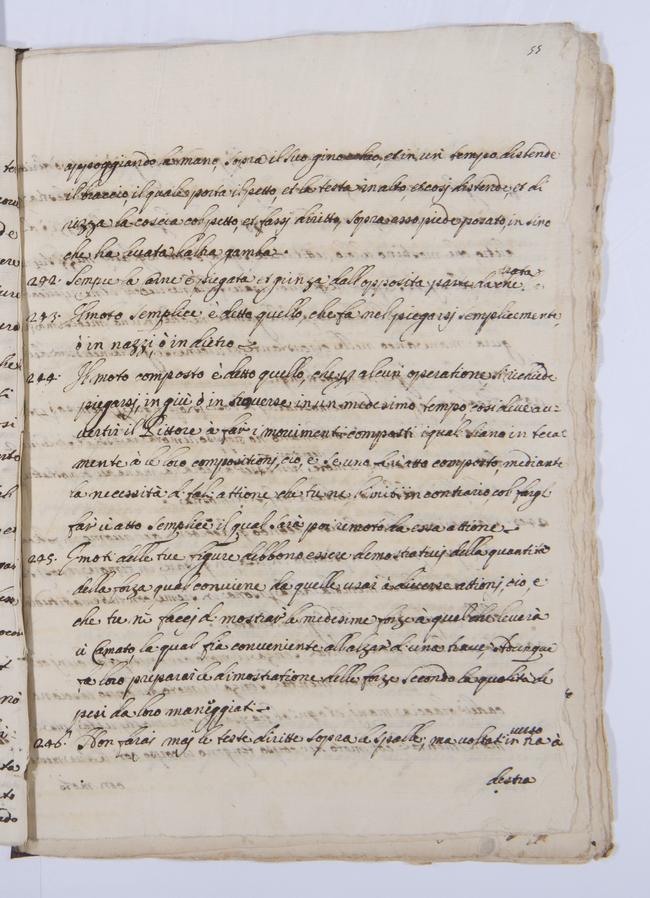 55
appoggiando la mano, sopra il suo ginocchio, et in un tempo distende
il braccio il quale porta il petto, et la testa in alto, et così distende, et di
rizza la coscia col petto, et farsi diritto, sopra esso piede posato, insino
che ha levata l'altra gamba.
242. Sempre la carne è piegata et grinza dall'opposita parte da che
è tirata
243. Il moto semplice è detto quello, che fa nel piegarsi semplicemente,
ò in nazzi, ò in dietro
244. Il moto composto è detto quello, che p alcun operatione, si richiede
piegarsi, in giù, ò in traverse, in un medesimo tempo cosi deve au
vertir il Pittore à far i movimenti composti i quali siano in tera
mente à le loro compositioni, cio, è se uno fa atto composto, mediante
la necessità di tal' attione che tu ne l'imiti in contrario, col fargl
far ù atto semplice il qual sarà poi remoto da essa attione
245. I moti delle tue figure debbono essere demostrativi della quantità
della forza qual conviene da quelle usar à diverse attioni, cio, è
che tu nō facci di mostrar la medesime forze à quel che leverà
ù Camato, la qual fia conveniente all'alzar' d' una trave. Adunque
fa loro preparar le dimostratione delle forze secondo la qualità de
pesi da loro maneggiat
246. Non farai mai le teste diritte sopra le spalle, ma voltat' in verso à
destra